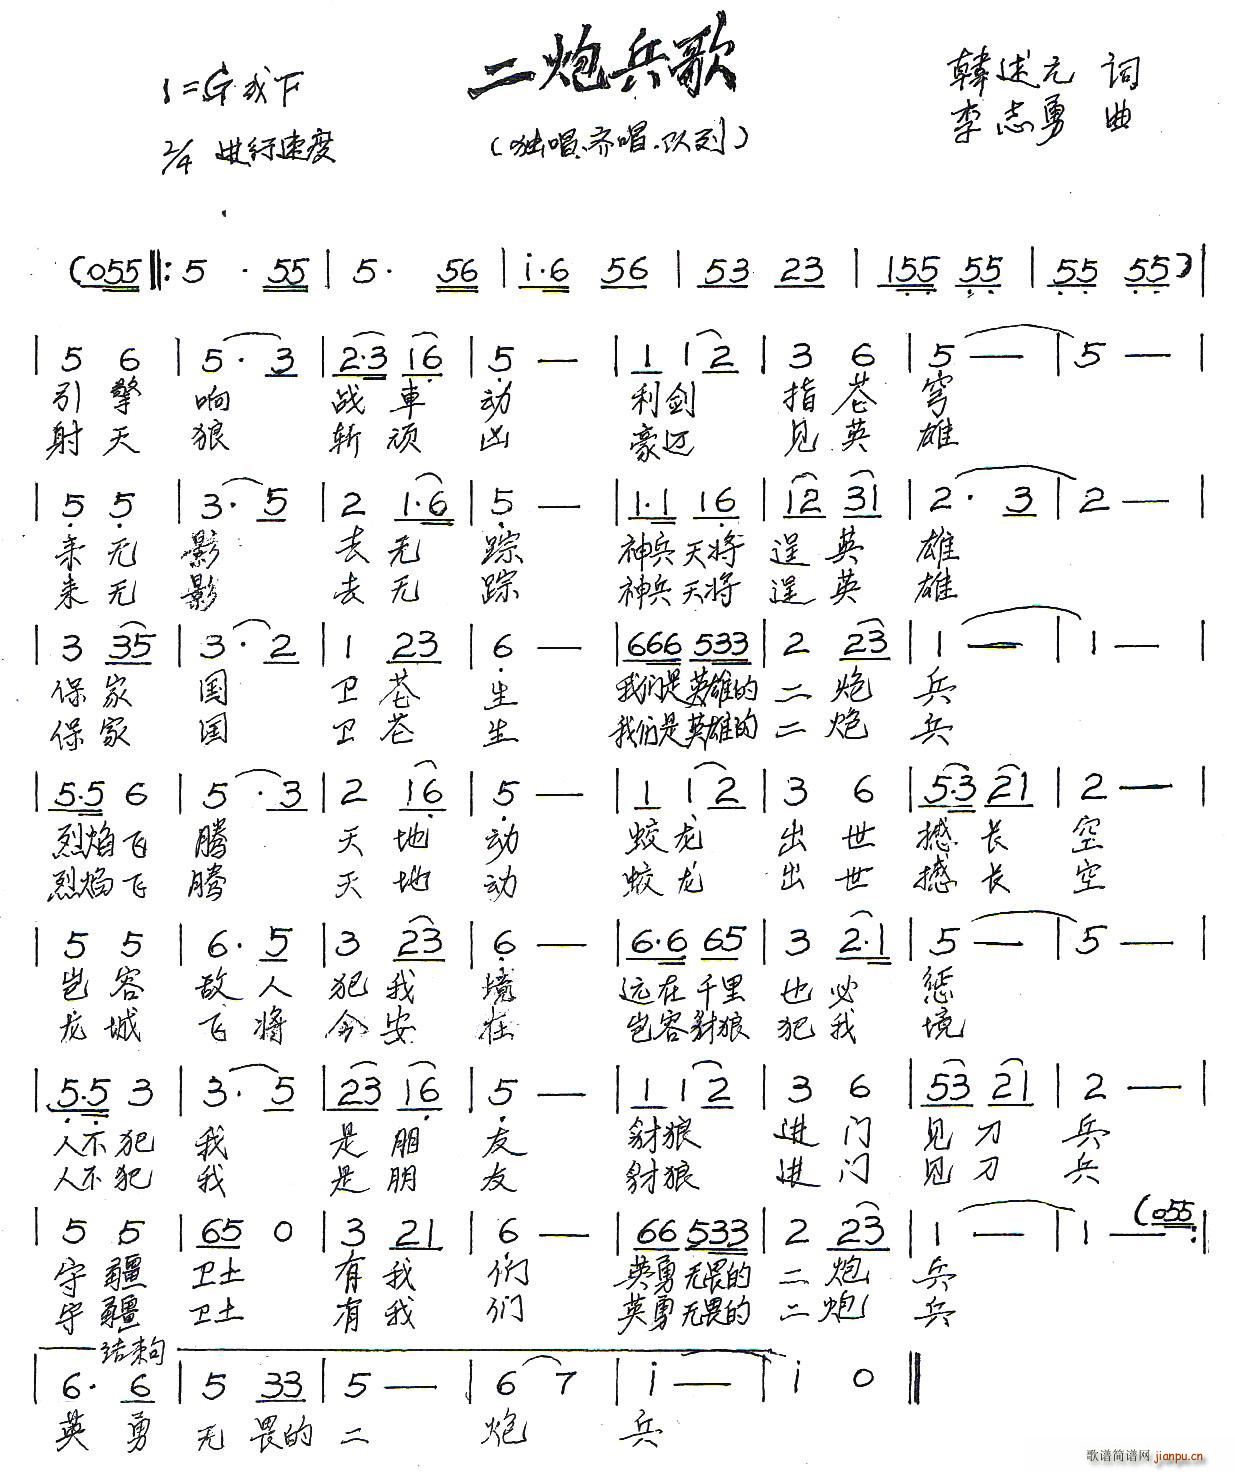 二炮兵歌
1=G或F
2/4 进行速度
(独唱、齐唱、队列)
韩述元 词
李志勇 曲
(055 ‖: 5 · 55 | 5 · 56 | i·6 56 | 53 23 | 155 55 | 55 55) |
| 5 6 | 5 · 3 | 2·3 16 | 5 — | 1 1 2 | 3 6 | 5 — | 5 — |
引擎 响 战車 动 利剑 指苍 穹
射天 狼 斩顽 凶 豪迈 见英 雄
| 5 5 | 3 · 5 | 2 1·6 | 5 — | 1·1 16 | 12 31 | 2 · 3 | 2 — |
来无 影 去无 踪 神兵天将 逞英 雄
来无 影 去无 踪 神兵天将 逞英 雄
| 3 35 | 3 · 2 | 1 23 | 6 — | 666 533 | 2 23 | 1 — | 1 — |
保家 国 卫苍 生 我们是英雄的 二炮 兵
保家 国 卫苍 生 我们是英雄的 二炮 兵
| 5·5 6 | 5 · 3 | 2 16 | 5 — | 1 1 2 | 3 6 | 5·3 21 | 2 — |
烈焰飞 腾 天地 动 蛟龙 出世 撼长 空
烈焰飞 腾 天地 动 蛟龙 出世 撼长 空
| 5 5 | 6 · 5 | 3 23 | 6 — | 6·6 65 | 3 2·1 | 5 — | 5 — |
岂容 敌人 犯我 境 远在千里 也必 惩
龙城 飞将 今安 在 岂容豺狼 犯我 境
| 5·5 3 | 3 · 5 | 23 16 | 5 — | 1 1 2 | 3 6 | 53 21 | 2 — |
人不犯 我 是朋 友 豺狼 进门 见刀 兵
人不犯 我 是朋 友 豺狼 进门 见刀 兵
| 5 5 | 65 0 | 3 21 | 6 — | 66 533 | 2 23 | 1 — | 1 — (055 :|
守疆 卫土 有我 们 英勇无畏的 二炮 兵
守疆 卫土 有我 们 英勇无畏的 二炮 兵
结束句
| 6 · 6 | 5 33 | 5 — | 6 7 | i — | i 0 ‖
英勇 无畏的 二 炮 兵
歌谱简谱网 jianpu.cn